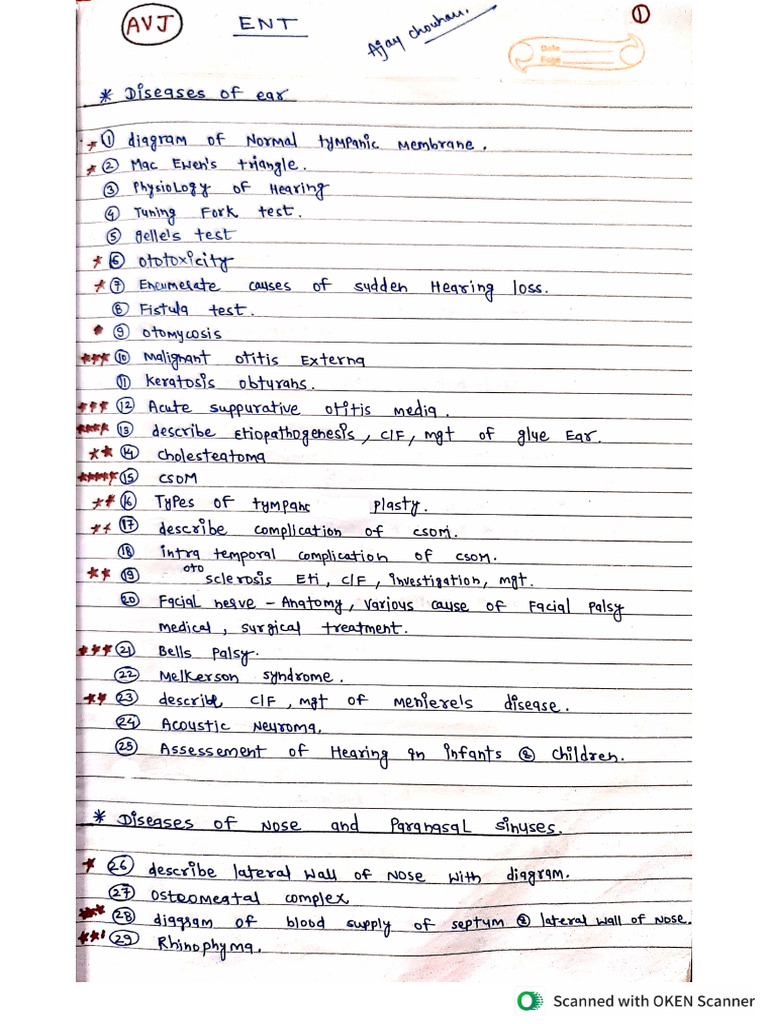 AVJ ENT Ajay chouhan. 1
Date
Page
* Diseases of ear
* 1 diagram of Normal tympanic Membrane.
* 2 Mac Ewen's triangle.
3 Physiology of Hearing
4 Tuning Fork test.
5 gelle's test
* 6 ototoxicity
* 7 Encumerate causes of sudden Hearing loss.
8 Fistula test.
9 otomycosis
*** 10 Malignant otitis Externa
11 Keratosis obtyrans.
*** 12 Acute suppurative otitis media.
**** 13 describe Etiopathogenesis, C/F, mgt of glue Ear.
** 14 cholesteatoma
***** 15 CSOM
** 16 Types of tympanc plasty.
** 17 describe complication of csom.
18 intra temporal complication of csom.
** 19 oto sclerosis Eti, C/F, investigation, mgt.
20 Facial nerve - Anatomy, various cause of Facial Palsy
medical, surgical treatment.
*** 21 Bells Palsy.
22 Melkerson syndrome.
** 23 describe C/F, mgt of menierels disease.
24 Acoustic Neuroma.
25 Assessement of Hearing in infants & children.
* Diseases of Nose and Paranasal sinuses.
* 26 describe lateral wall of Nose with diagram.
27 Osteomeatal complex
*** 28 diagram of blood supply of septum & lateral wall of Nose.
*** 29 Rhinophyma.
Scanned with OKEN Scanner